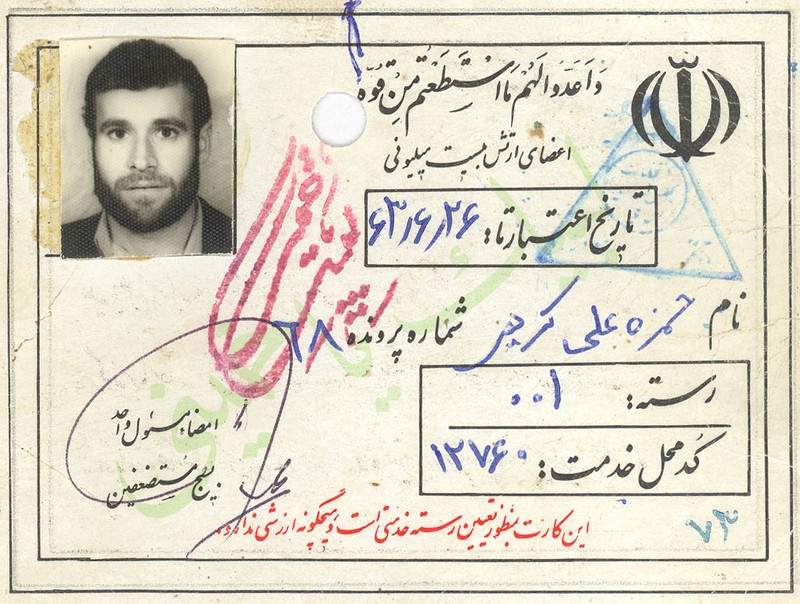 وَاَعِدّوُا لَهُم مَا اسْتَطَعْتُم مِنْ قُوَّه
اعضای ارتش بیست میلیونی
تاریخ اعتبار تا: ۶۳/۶/۲۶
نام حمزه علی کریمی
شماره پرونده ۶۸
رسته: ۰۰۱
کد محل خدمت: ۱۲۷۶۰
امضاء مسئول واحد
بسیج مستضعفین
این کارت بمنظور تعیین رسته خدمتی است و هیچگونه ارزشی ندارد.